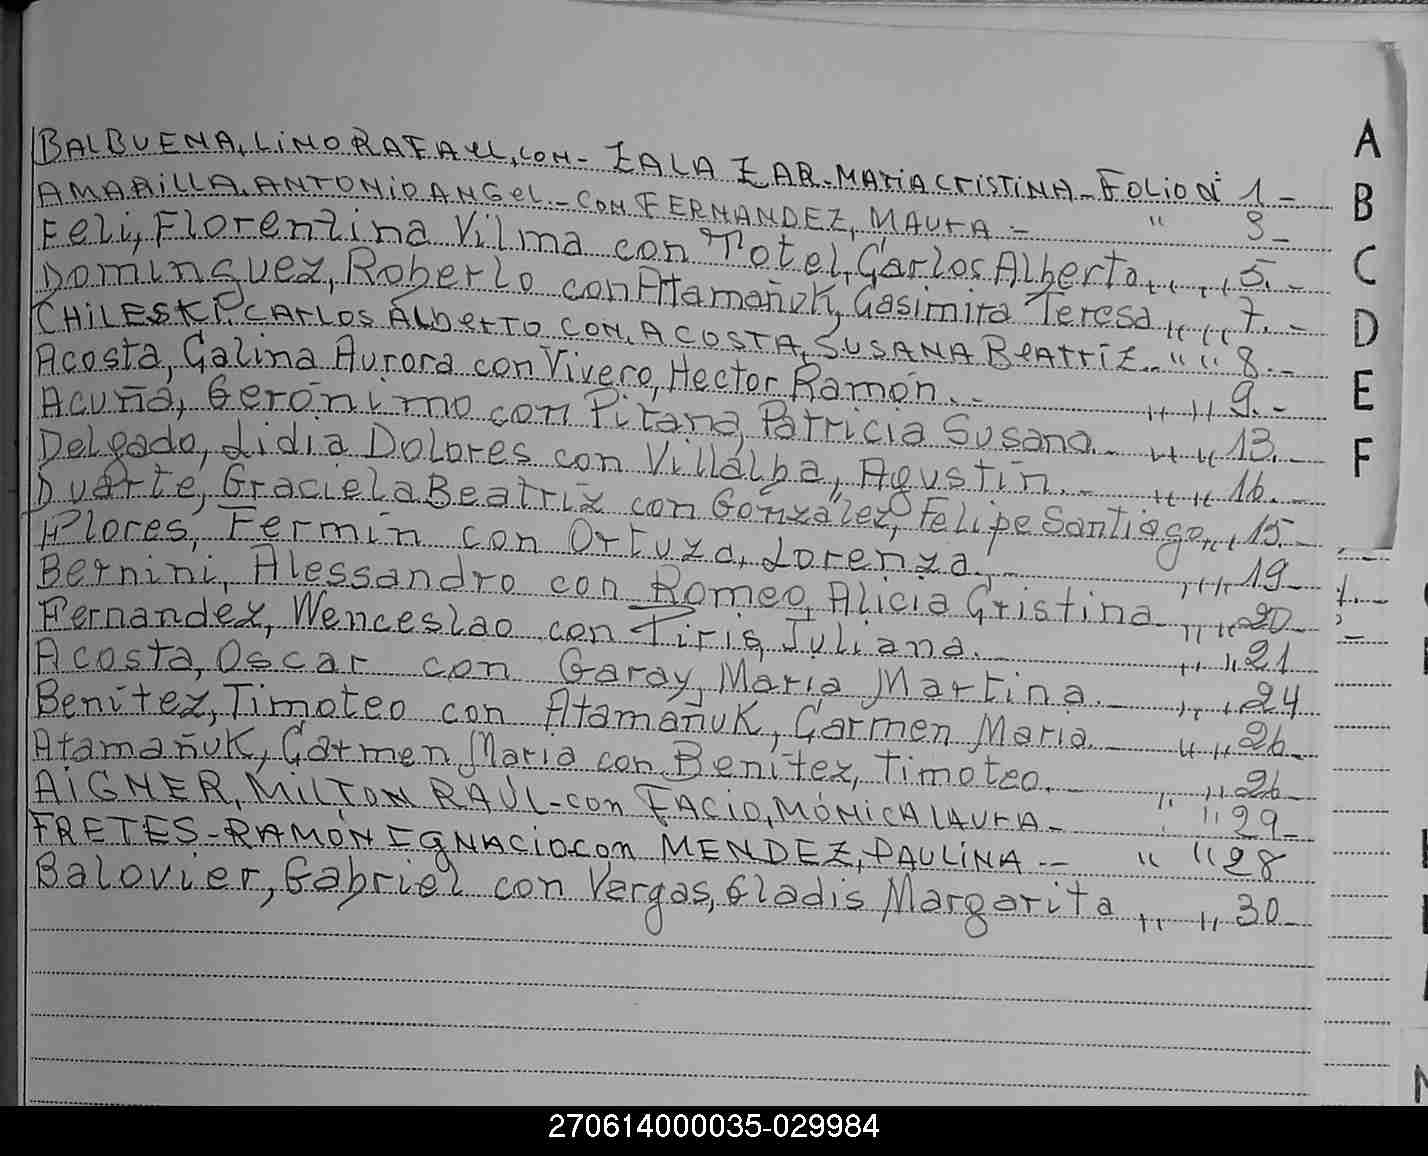 BALBUENA, LINO RAFAEL, CON- ZALAZAR-MARIA CRISTINA- FOLIO Nº 1-
AMARILLA, ANTONIO ANGEL.- CON FERNANDEZ, MAURA - " 3-
Feli, Florentina Vilma con Totel, Carlos Alberto, ,, ,, 5.-
Dominguez, Roberto con Atamañuk, Casimira Teresa ,, ,, 7.-
CHILESKI, CARLOS ALBERTO CON, ACOSTA, SUSANA BEATRIZ.. " " 8.-
Acosta, Galina Aurora con Vivero, Hector Ramón.- ,, ,, 9.-
Acuña, Gerónimo con Pitana, Patricia Susana.- ,, ,, 13.-
Delgado, Lidia Dolores con Villalba, Agustín.- ,, ,, 16.-
Duarte, Graciela Beatriz con González, Felipe Santiago ,, ,, 15.-
Flores, Fermín con Ortuza, Lorenza,- ,, ,, 19-
Bernini, Alessandro con Romeo, Alicia Cristina - ,, ,, 20-
Fernandez, Wenceslao con Tiris, Juliana.- ,, ,, 21
Acosta, Oscar con Garay, María Martina.- ,, ,, 24
Benitez, Timoteo con Atamañuk, Carmen María - ,, ,, 26-
Atamañuk, Carmen María con Benítez, Timoteo.- ,, ,, 26-
AIGNER, MILTON RAÚL-con FACIO, MÓNICA LAURA- " " 29-
FRETES-RAMÓN IGNACIO con MENDEZ, PAULINA -- " " 28
Balovier, Gabriel con Vergas, Gladis Margarita ,, ,, 30-
A
B
C
D
E
F
270614000035-029984